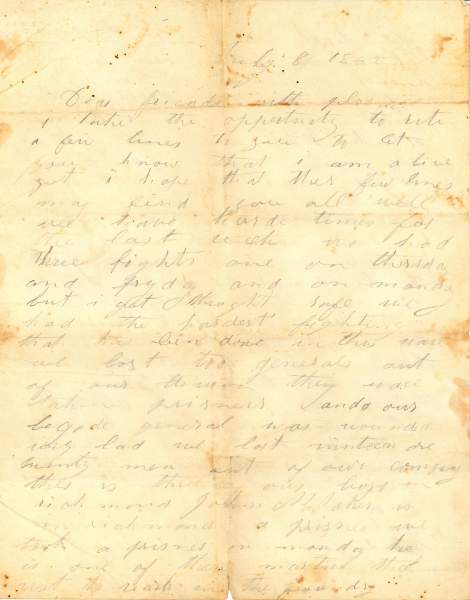 July 8 1862
Dear friends with pleasure
i take the oppertunity to rite
a few lines to you to let
you know that i am alive
yet i hope that ther few lines
may find you all well
we have harde times for
the last week we had
three fights one on thersda
and fryday and on monda
but i got throght safe we
had the hardest fighting
that has bin done in this ware
we lost too generals out
of our they ware
taken prisners and our
general was wounded
very bad we lost
twenty men out of our company
this is three of our boys in
richmond John is
in richmond a prisner we
took a prisner on monday he
is one of the that
ust to work in the foundry